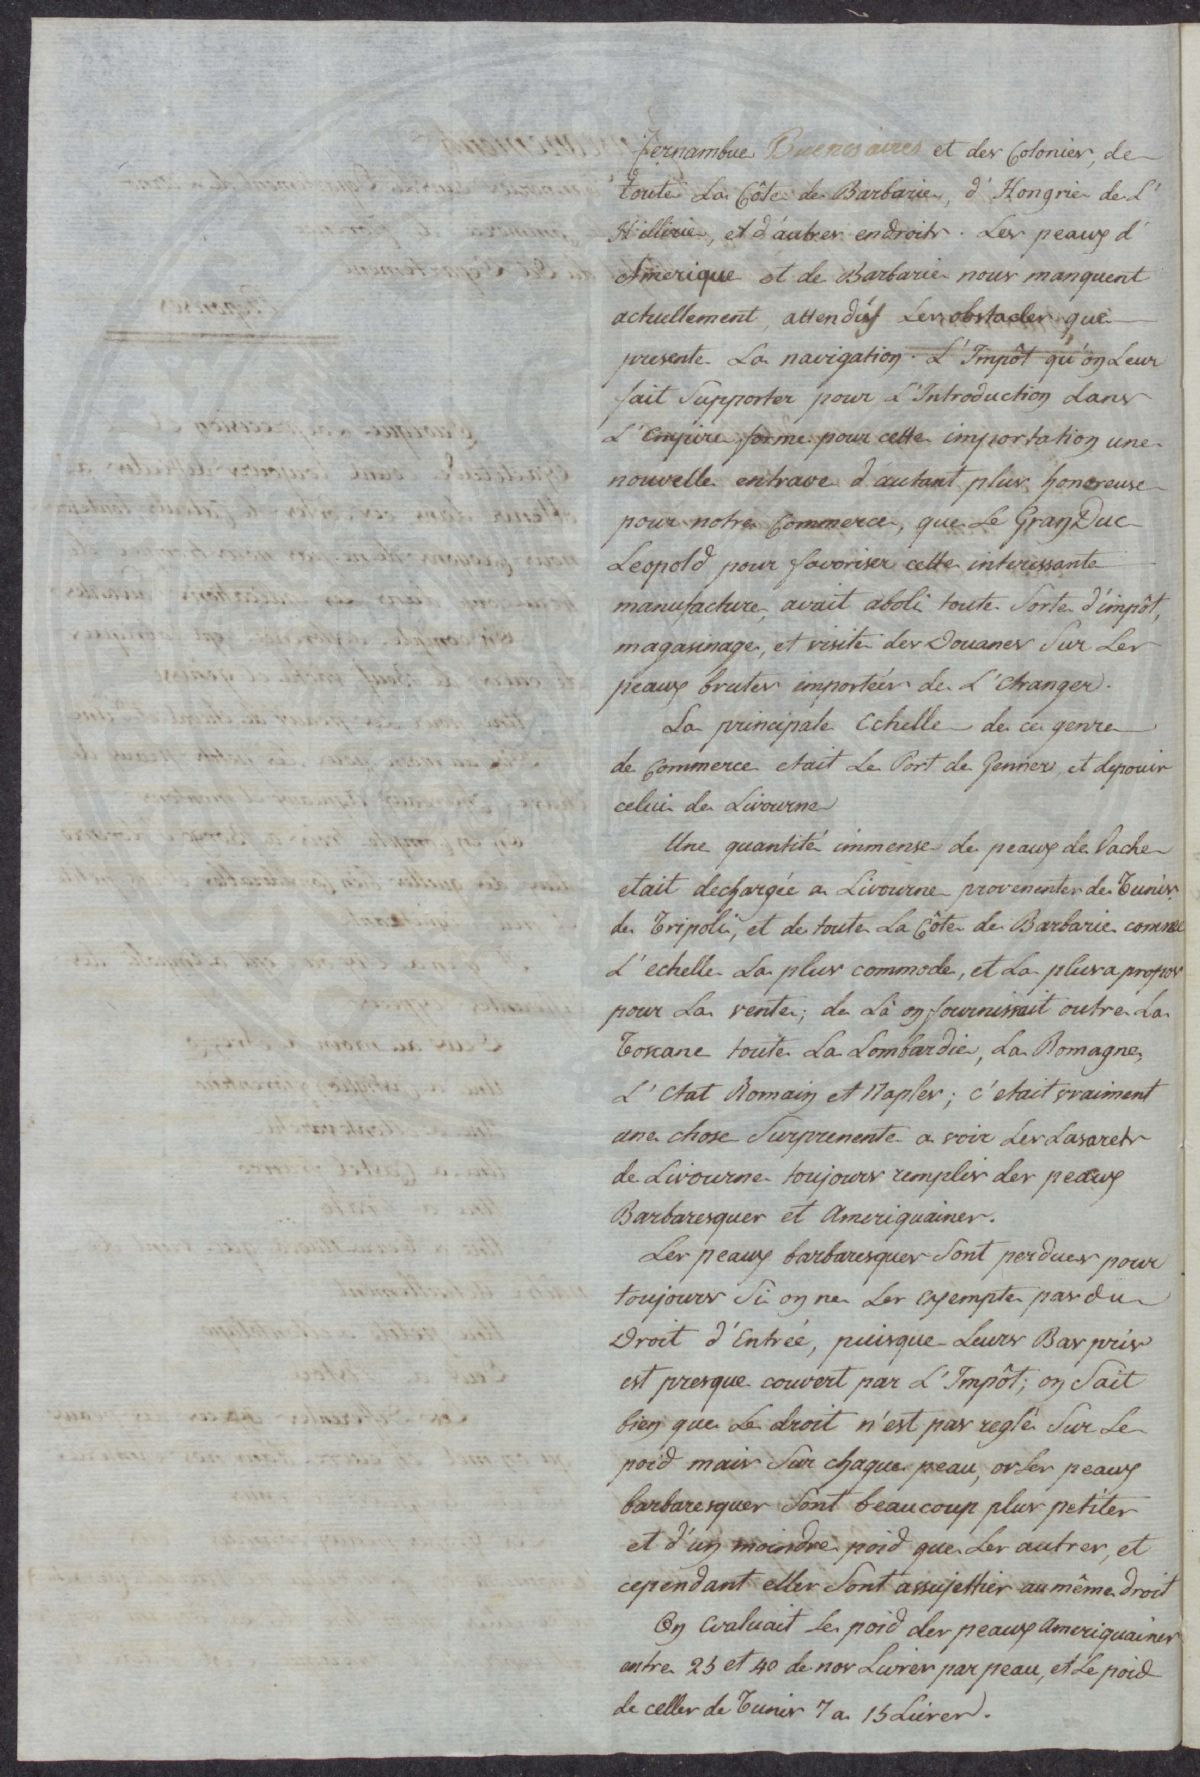 Fernambue Buenos aires et des Colonies, de
toute La Côte de Barbarie, d' Hongrie de L'
Hillirie, et d'autres endroits. Les peaux d'
Amerique et de Barbarie nous manquent
actuellement, attendûs Les obstacles que
presente La navigation. L'Impôt qu'on Leur
fait Supporter pour L'Introduction dans
L'Empire forme pour cette importation une
nouvelle entrave d'autant plus honereuse
pour notre Commerce, que Le Gran Duc
Leopold pour favoriser cette interissante
manufacture, avait aboli toute Sorte d'impôt,
magasinage, et visite des Douanes Sur Les
peaux brutes importéés de L'Etranger.
La principale Echelle de ce genre
de Commerce etait Le Port de Gennes, et depouis
celui de Livourne
Une quantité immense de peaux de Vache
etait dechargée a Livourne provenentes de Tunis
de Tripoli, et de toute La Côte de Barbarie comme
L'echelle La plus commode, et La plus a propos
pour La vente; de Là on fournissait outre La
Toscane toute La Lombardie, La Romagne,
L'Etat Romain et Naples; c'etait vraiment
une chose Surprenente a voir Les Lasarets
de Livourne toujours remplis des peaux
Barbaresques et Ameriquaines.
Les peaux barbaresques Sont perdues pour
toujours Si on ne Les exempte pas du
Droit d'Entrée, puisque Leurs Bas pris
est presque couvert par L'Impôt; on Sait
bien que Le droit n'est pas reglé Sur Le
poid mais Sur chaque peau, or Les peaux
barbaresques Sont beaucoup plus petites
et d'un moindre poid que Les autres, et
cependant elles Sont assujetties au même droit
On Evaluait Le poid des peaux Ameriquaines
entre 25 et 40 de nos Livres par peau, et Le poid
de celles de Tunis 7 a 15 Livres.